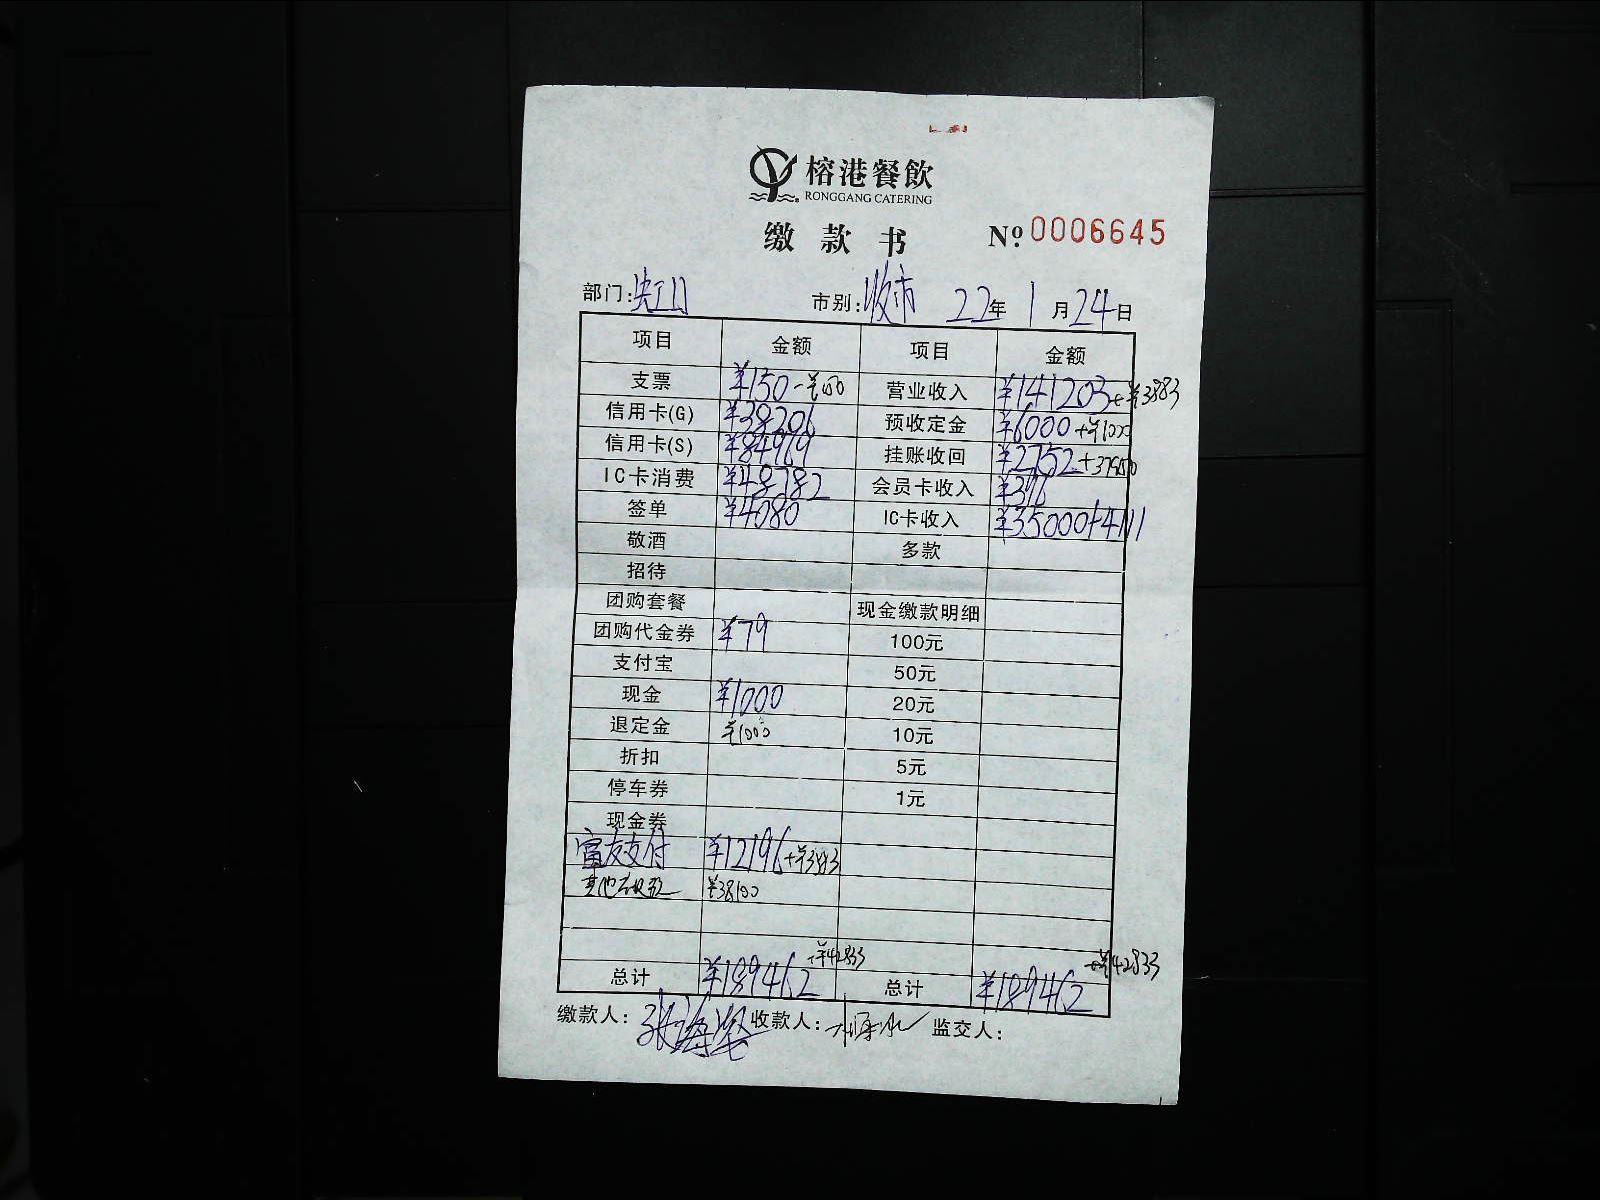 榕港餐飲
RONGGANG CATERING
缴款书 Nº: 0006645
部门: 市别:收市 22年1月24日
项目 金额 项目 金额
支票 ¥150 营业收入 ¥141203+¥3883
信用卡(G) ¥38206 预收定金 ¥6000+¥1000
信用卡(S) ¥84969 挂账收回 ¥2752
IC卡消费 ¥48782 会员卡收入 ¥396
签单 ¥4080 IC卡收入 ¥35000+4111
敬酒 多款
招待
团购套餐 现金缴款明细
团购代金券 ¥79 100元
支付宝 50元
现金 ¥1000 20元
退定金 ¥1000 10元
折扣 5元
停车券 1元
现金券
富友支付 ¥12196+¥3883
¥38100
+¥42833 +¥42833
总计 ¥189462 总计 ¥189462
缴款人: 收款人: 监交人: